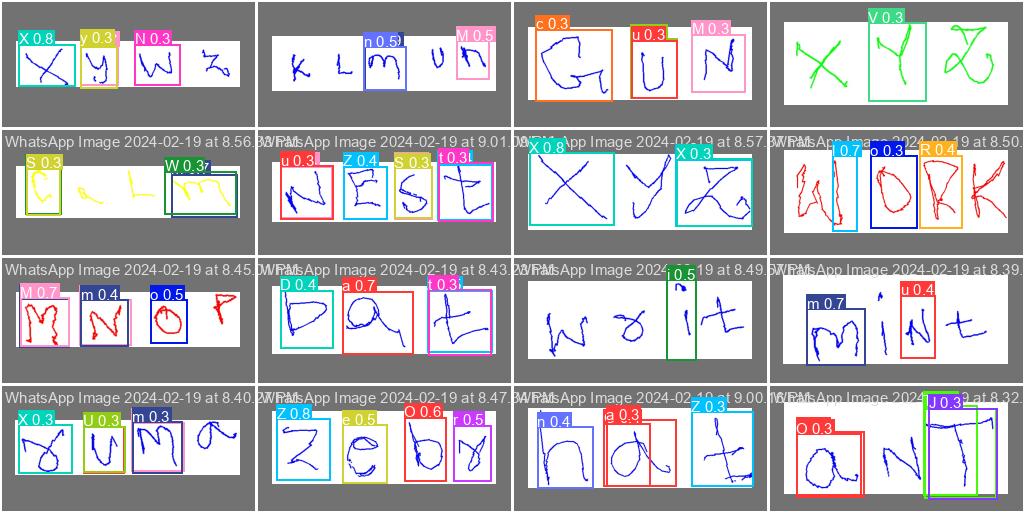 X 0.8 y 0.3 N 0.3
X y W z
n 0.5 M 0.5
K L m U n
c 0.3 u 0.3 M 0.3
G U N
V 0.3
X Y Z
WhatsApp Image 2024-02-19 at 8.56.
S 0.3 W 0.3
C a L m
WhatsApp Image 2024-02-19 at 9.01.
u 0.3 Z 0.4 S 0.3 t 0.3
N E S t
WhatsApp Image 2024-02-19 at 8.57.
X 0.8 X 0.3
X Y Z
WhatsApp Image 2024-02-19 at 8.50.
0.7 o 0.3 R 0.4
W O R K
WhatsApp Image 2024-02-19 at 8.45.
M 0.7 m 0.4 o 0.5
M N O P
WhatsApp Image 2024-02-19 at 8.43.
D 0.4 a 0.7 t 0.3
D a t
WhatsApp Image 2024-02-19 at 8.49.
i 0.5
W a i t
WhatsApp Image 2024-02-19 at 8.39.
m 0.7 u 0.4
m i N t
WhatsApp Image 2024-02-19 at 8.40.
X 0.3 U 0.3 m 0.3
r u m a
WhatsApp Image 2024-02-19 at 8.47.
Z 0.8 e 0.5 O 0.6 r 0.5
Z e b r
WhatsApp Image 2024-02-19 at 9.00.
n 0.4 a 0.3 Z 0.3
h a t
WhatsApp Image 2024-02-19 at 8.32.
O 0.3 J 0.3
a N T